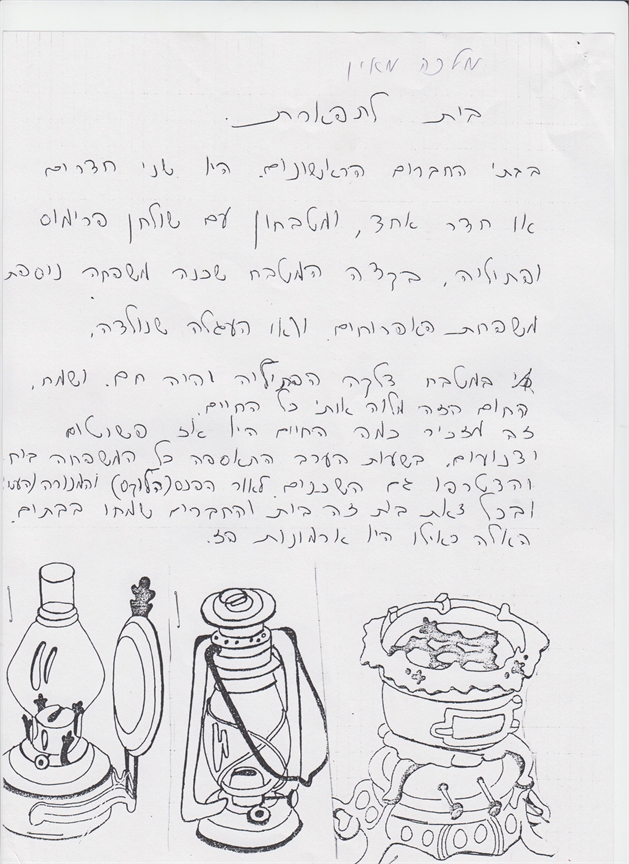 מלכה מאין
בית לתפארת.
בבתי החברים הראשונים. היו שני חדרים
או חדר אחד, ומטבחון עם שולחן פרימוס
ופתיליה, בקצה המטבח שכנה משפחה נוספת
משפחת האפרוחים. ו/או העגלה שנולדה,
במטבח דלקה הפתיליה והיה חם. ושמח,
החום הזה מלוה אותי כל החיים.
זה מזכיר כמה החיים היו אז פשוטים
וצנועים. בשעות הערב התאספה כל המשפחה ביחד
והצטרפו גם השכנים. לאור הפנס (הלוקס) והמנורה
ובכל זאת בית זה בית והחברים שמחו בבתים
האלה כאילו היו ארמונות פז.